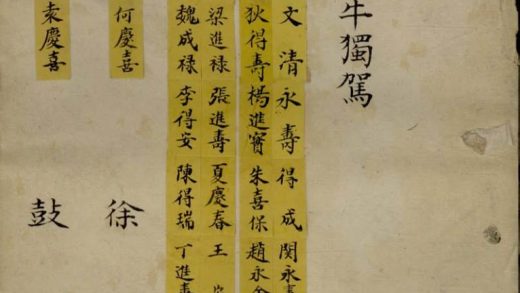 牛獨駕
文清永壽得成閔永
狄得壽楊進寶朱喜保趙永
梁進禄張進壽夏慶春王
魏成禄李得安陳得瑞丁進
何慶喜 徐
袁慶喜 鼓